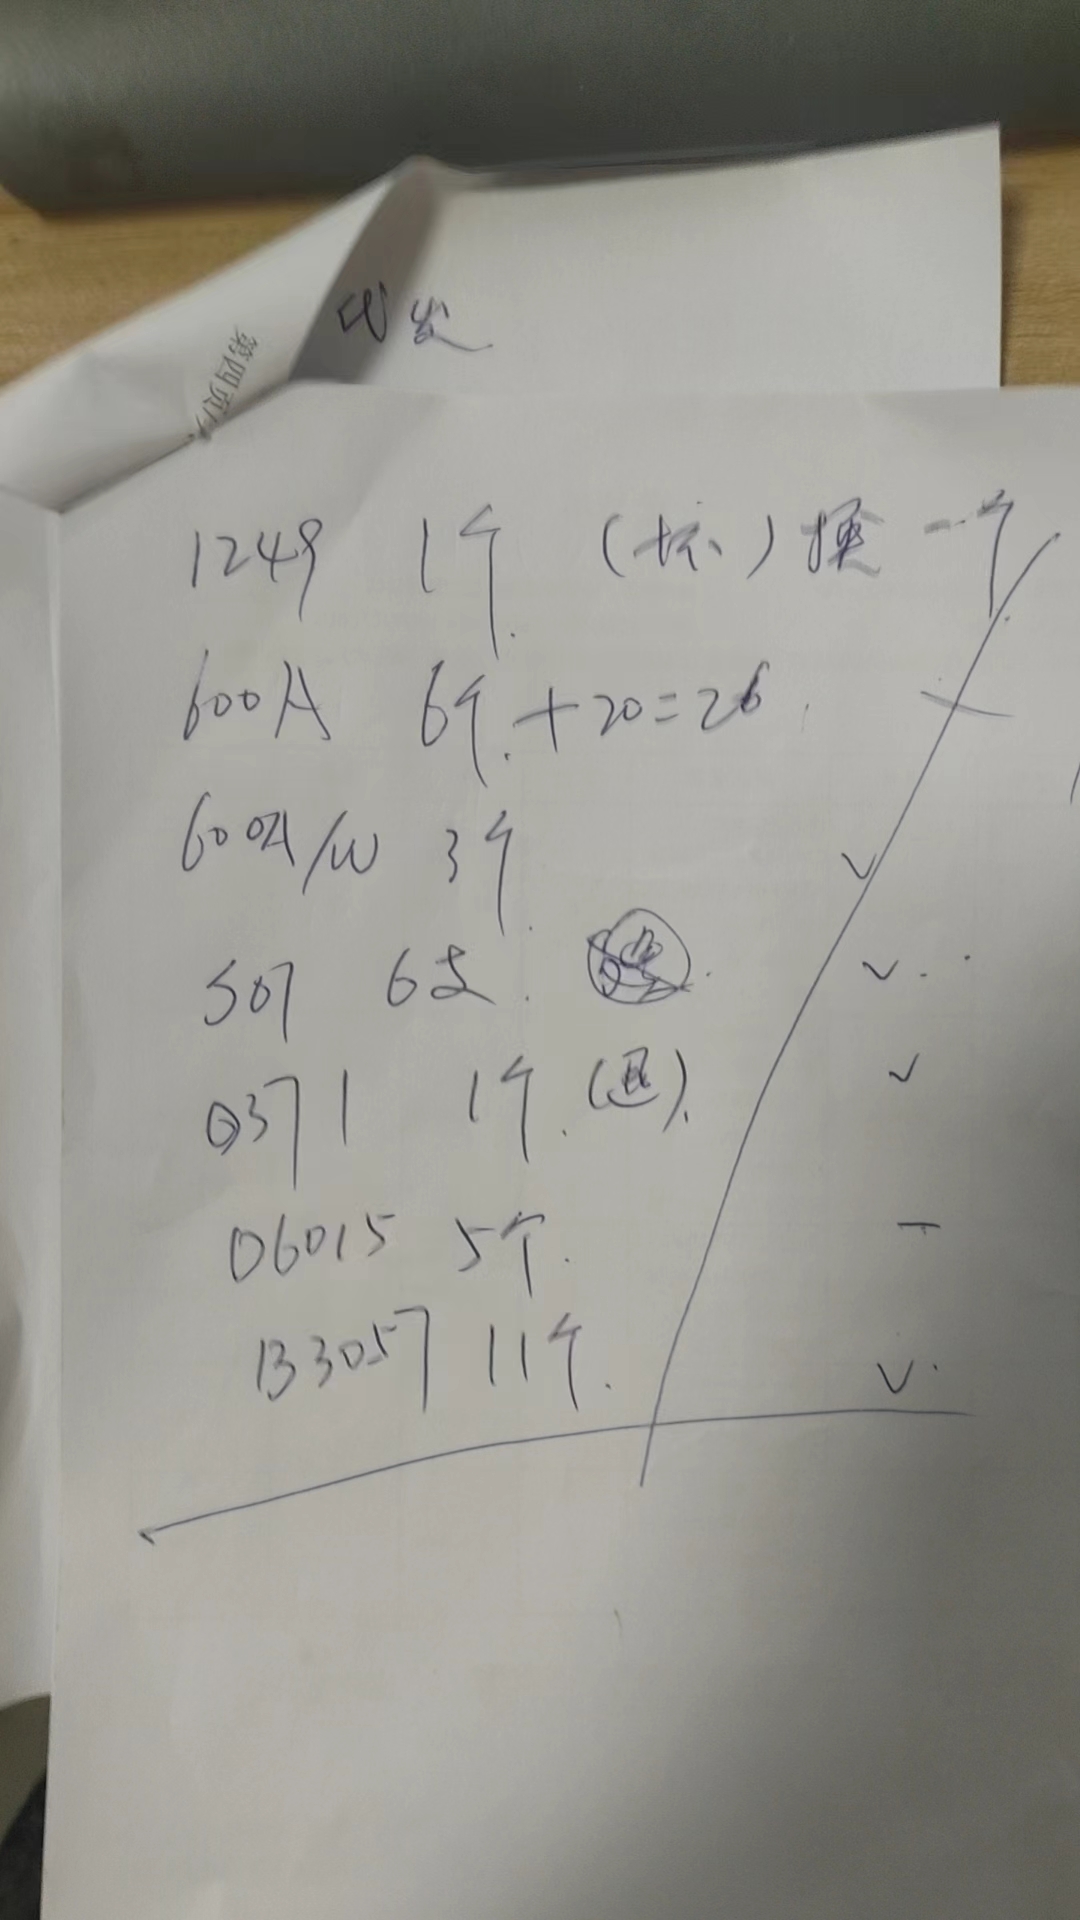 发
第四页
1249 1个 (坏) 换一个
600A 6个.+20=26
600A/W 3个.
507 6支.
0371 1个. (退).
06015 5个.
B3057 11个.